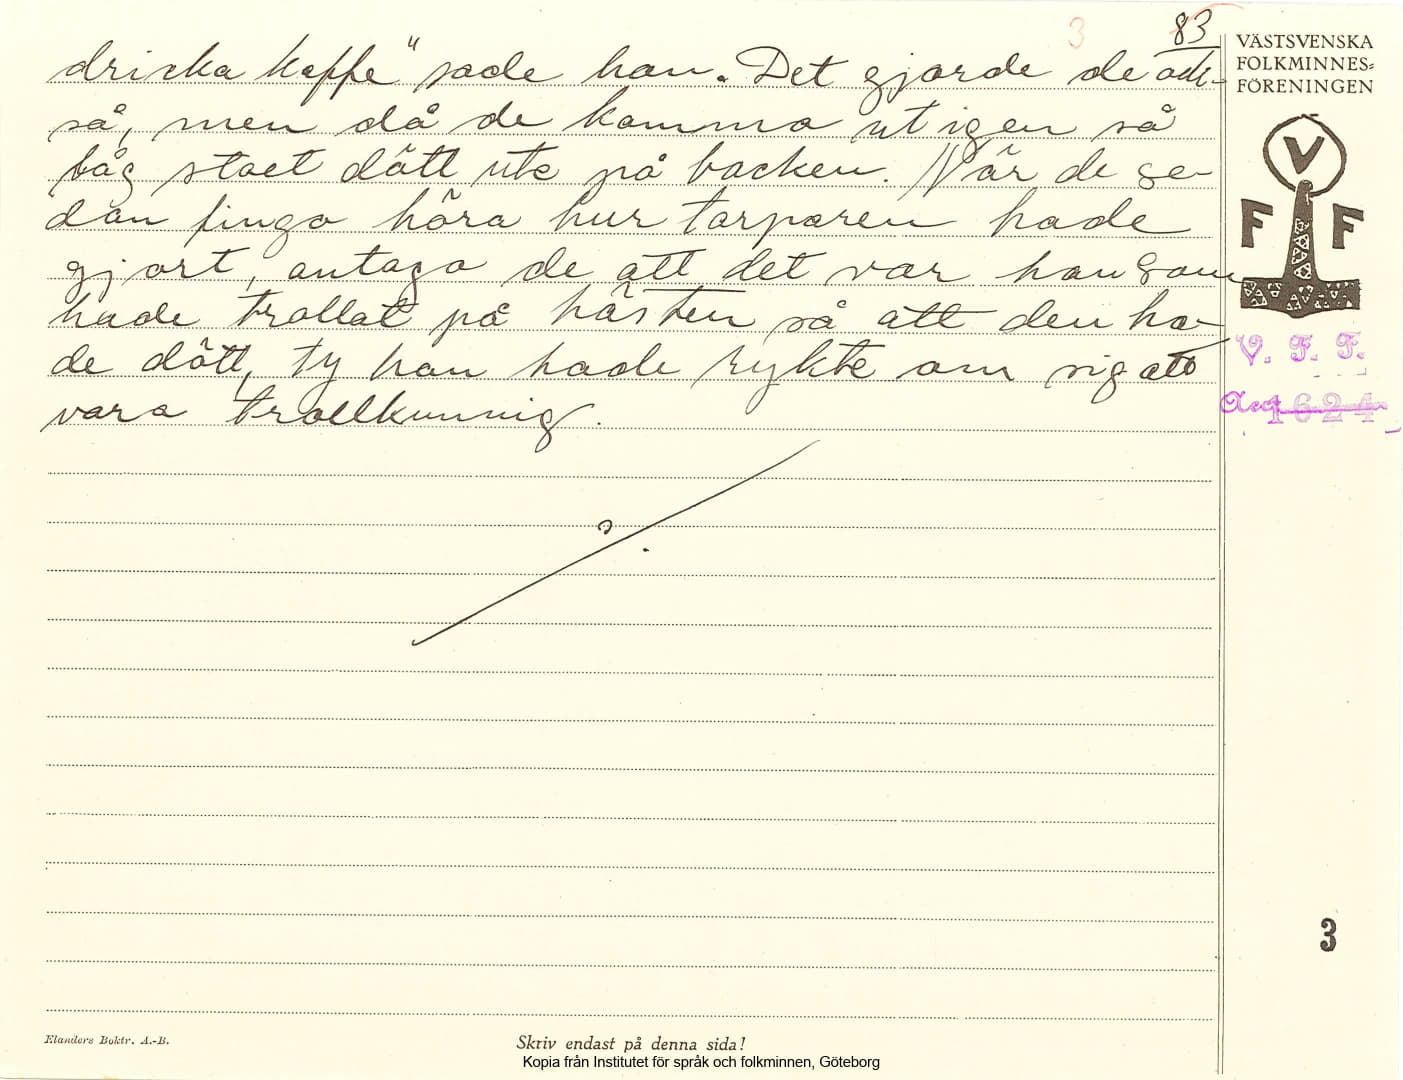 3
83
dricka kaffe" sade han. Det gjorde de ock-
så, men då de komma ut igen så
låg stoet dött ute på backen. När de se-
dan fingo höra hur torparen hade
gjort, antaga de att det var han som
hade trollat på hästen så att den ha-
de dött, ty han hade rykte om sig att
vara trollkunnig.
VÄSTSVENSKA
FOLKMINNES=
FÖRENINGEN
V
F F
V. F. F.
Acc 1624
3
Elanders Boktr. A.-B.
Skriv endast på denna sida!
Kopia från Institutet för språk och folkminnen, Göteborg